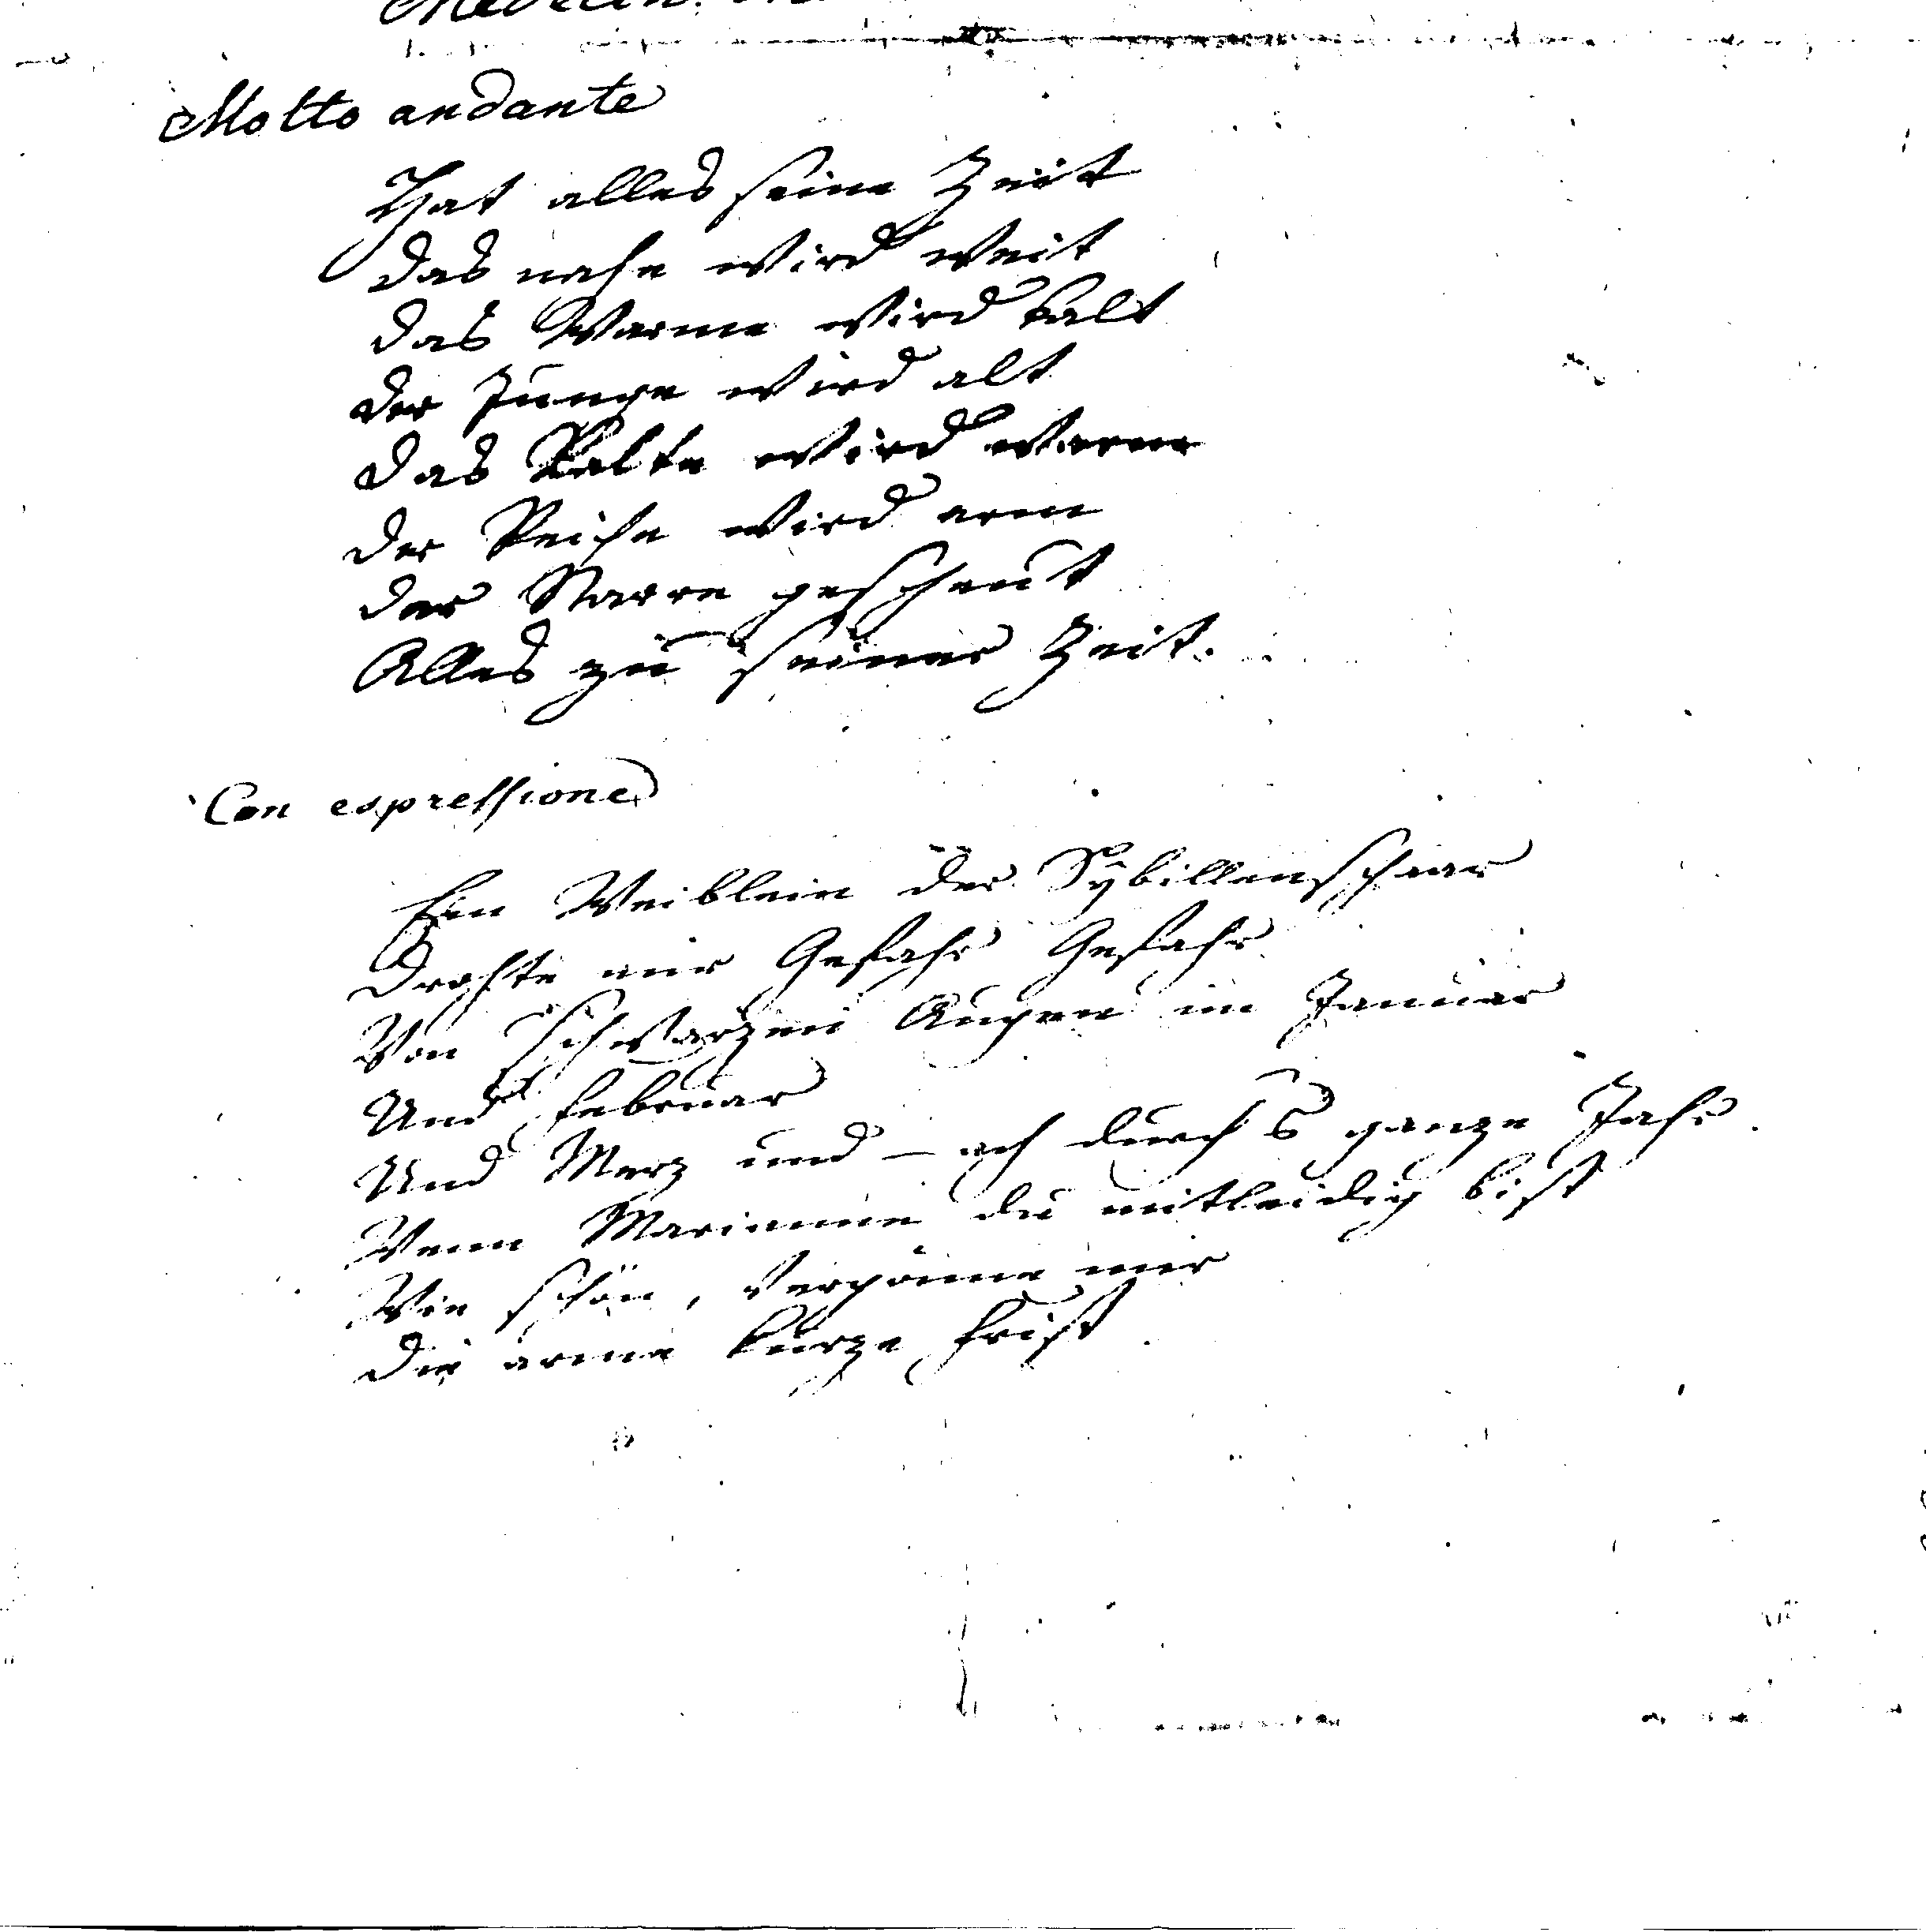 Molto andante
Hat alles seine Zeit
Das nahe wird weit
Das Warme wird kalt
Der Junge wird alt
Das Kalte wird warm
Der Reiche wird arm
Der Narre gescheut
Alles zu seiner Zeit.
Con espressione
Ein Weiblein der Sybillenschaar
Drohte mir Gefahr Gefahr
Von schwarzen Augen im Januar
Und Februar
Und Merz und – ach durch's ganze Jahr.
Wenn Marianne du mitleidig bist
Wie schön, vergönne mir
Die arme kurze Frist